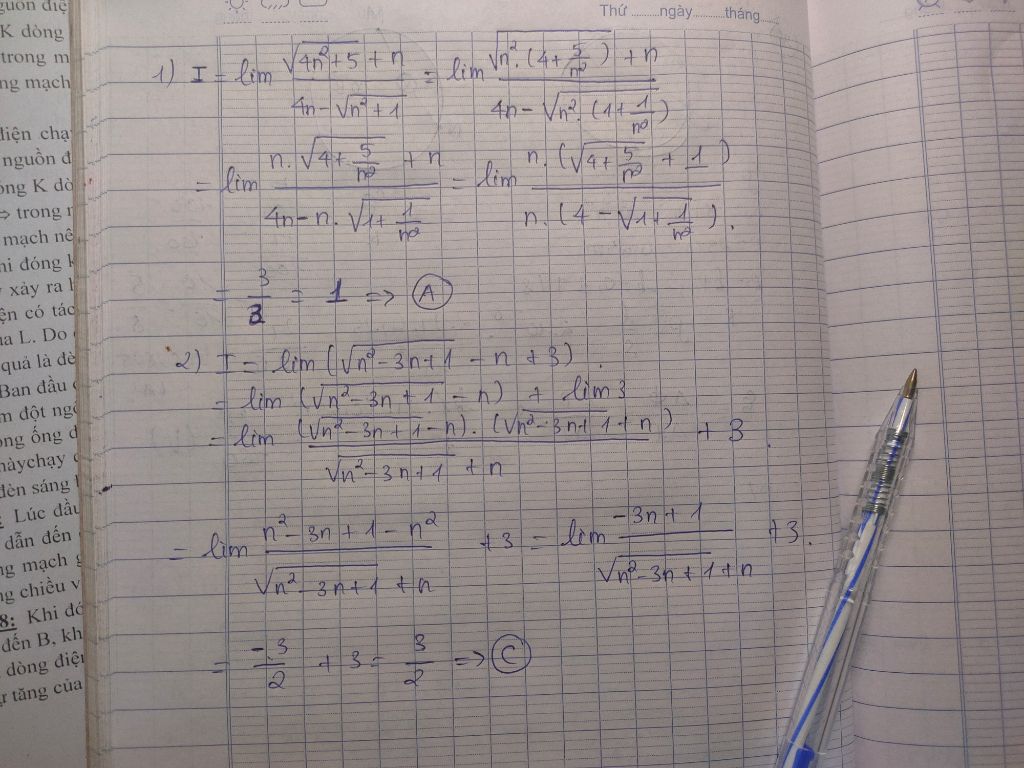 Thứ ........ngày.........tháng.....
guồn điệ
K dòng
trong m
ng mạch
điện chạ
nguồn đ
óng K dò
⇒ trong r
mạch nê
hi đóng k
y xảy ra l
ện có tác
ủa L. Do
quả là đè
Ban đầu
m đột ngộ
ong ống d
nàychạy c
đèn sáng
Lúc đầu
dẫn đến
ng mạch g
ng chiều v
8: Khi đó
đến B, kh
dòng điện
ự tăng của
1) I = lim (√(4n²+5) + n)/(4n - √(n²+1)) = lim (√(n².(4+5/n²)) + n)/(4n - √(n².(1+1/n²)))
= lim (n.√(4+5/n²) + n)/(4n - n.√(1+1/n²)) = lim (n.(√(4+5/n²) + 1))/(n.(4 - √(1+1/n²))).
= 3/3 = 1 => A
2) I = lim (√(n²-3n+1) - n + 3).
= lim (√(n²-3n+1) - n) + lim 3
= lim ((√(n²-3n+1) - n).(√(n²-3n+1) + n))/(√(n²-3n+1) + n) + 3.
= lim (n²-3n+1-n²)/(√(n²-3n+1) + n) + 3 = lim (-3n+1)/(√(n²-3n+1) + n) + 3.
= -3/2 + 3 = 3/2 => C